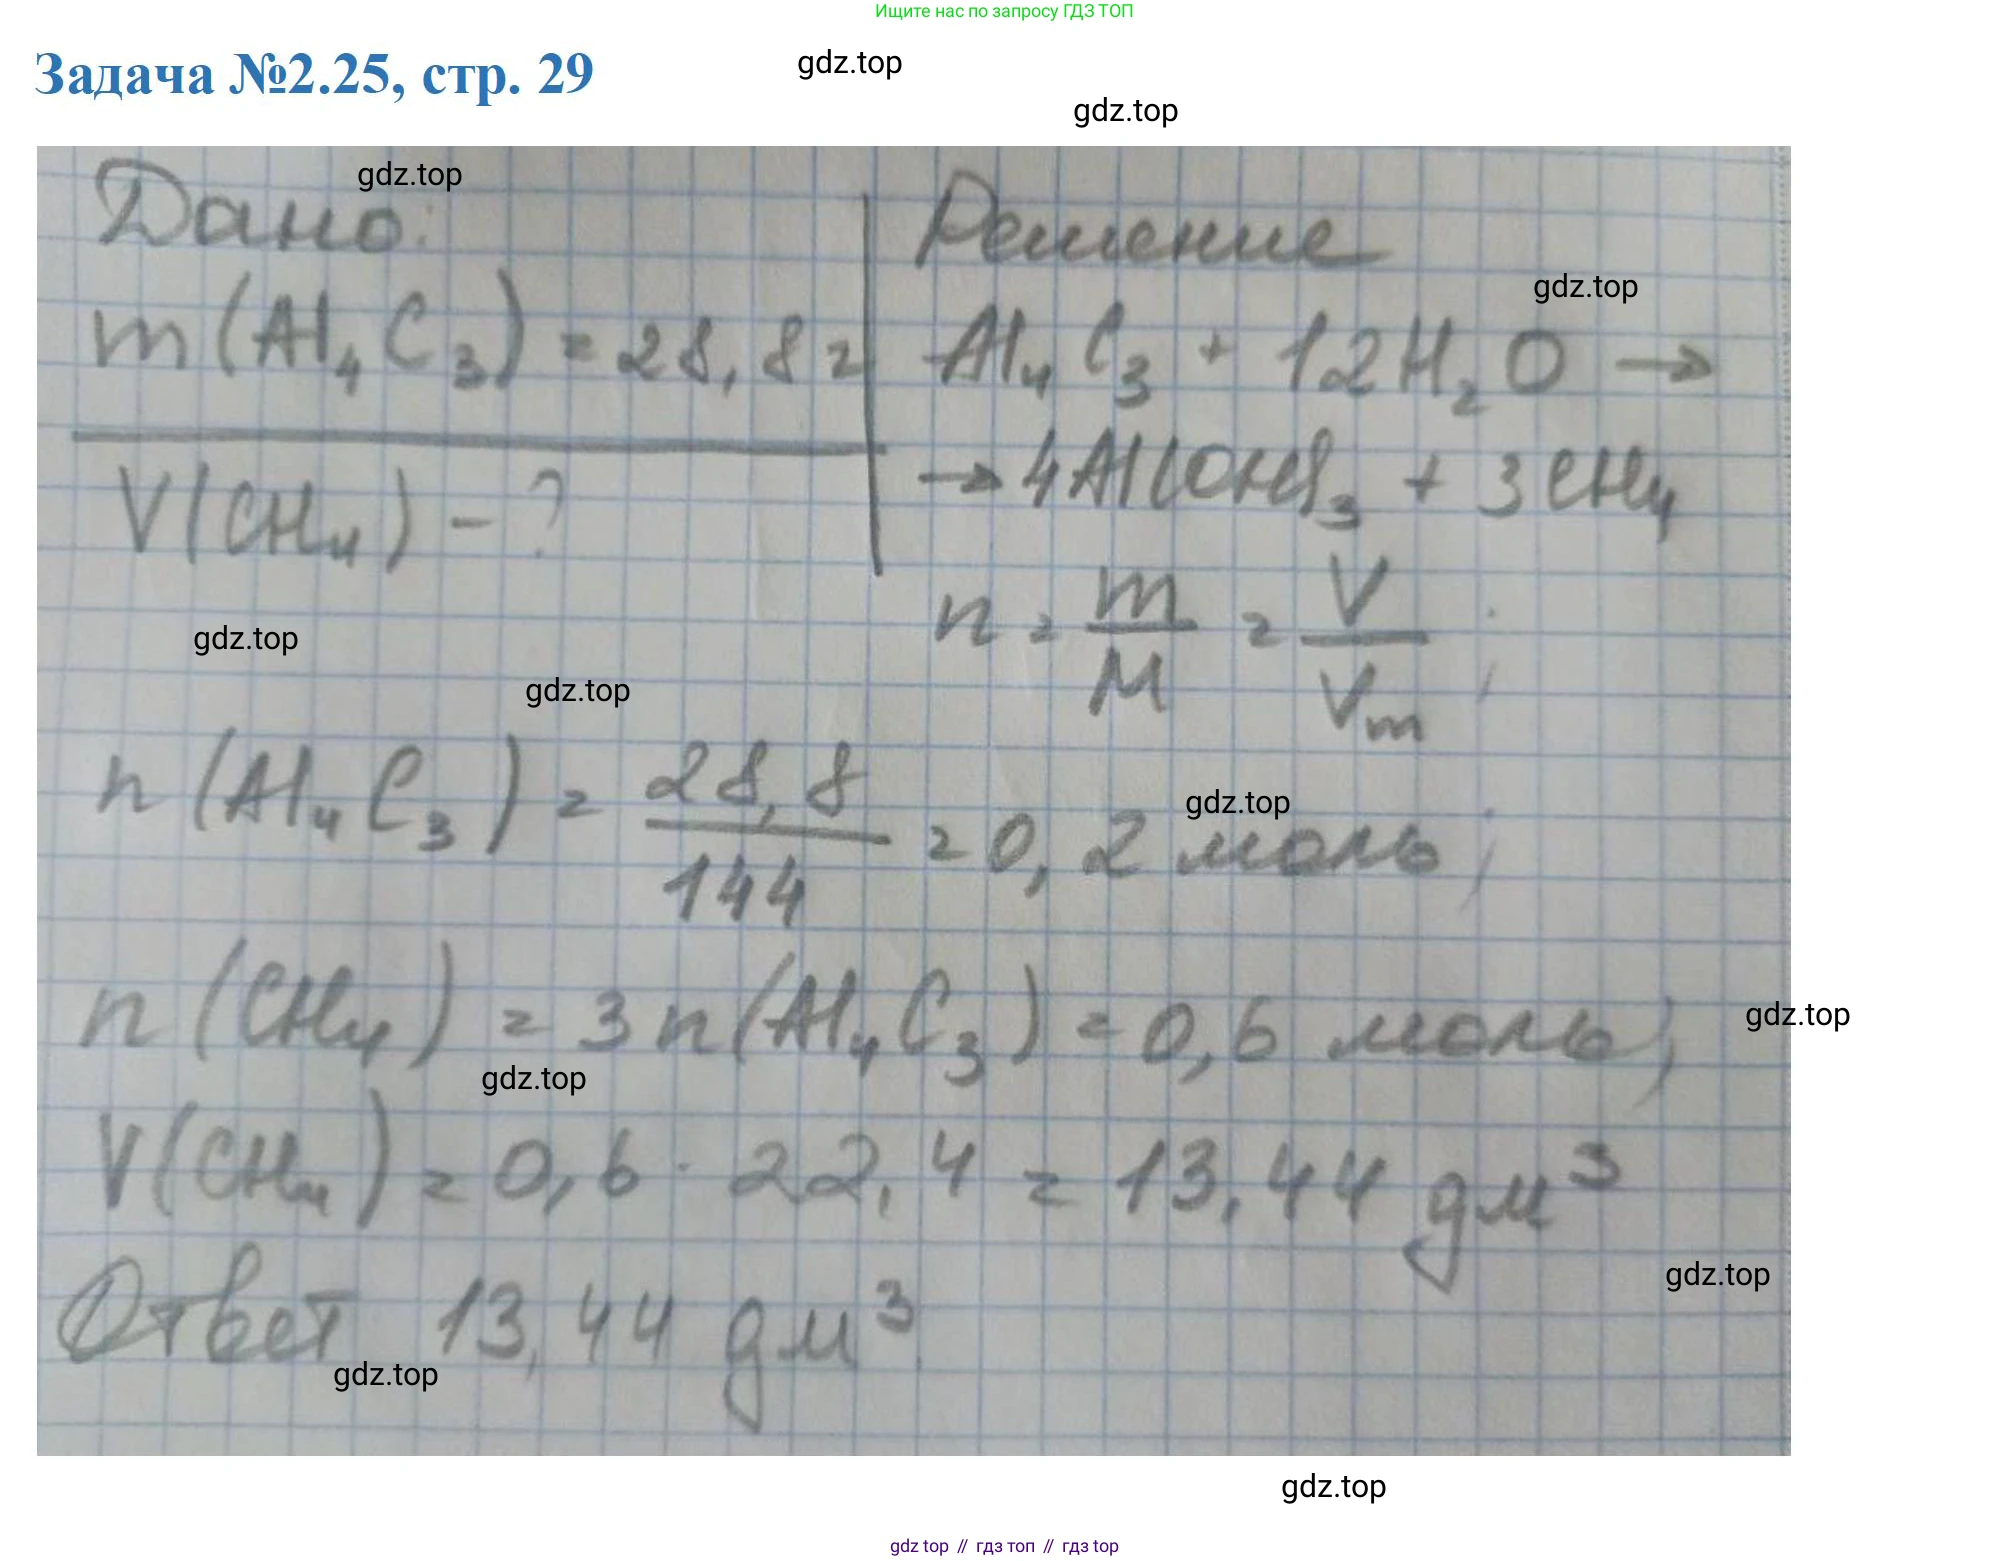 Ищите нас по запросу ГДЗ ТОП
Задача №2.25, стр. 29
gdz.top
gdz.top
gdz.top
Дано:
m(Al₄C₃) = 28,8 г
V(CH₄) - ?
Решение
gdz.top
Al₄C₃ + 12H₂O →
→ 4Al(OH)₃ + 3CH₄
n = m/M = V/Vm;
gdz.top
gdz.top
n(Al₄C₃) = 28,8/144 = 0,2 моль;
gdz.top
n(CH₄) = 3n(Al₄C₃) = 0,6 моль;
gdz.top
gdz.top
V(CH₄) = 0,6 · 22,4 = 13,44 дм³
gdz.top
Ответ 13,44 дм³
gdz.top
gdz.top
gdz top // гдз топ // гдз top